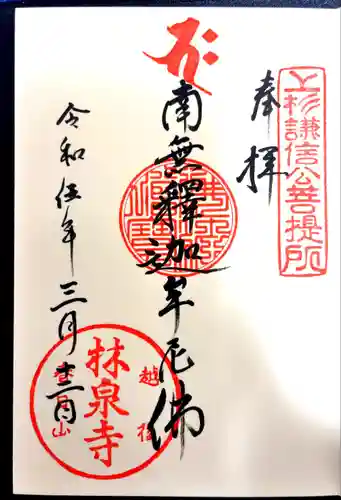 上杉謙信公菩提所
奉拝
南無釋迦牟尼佛
令和伍年三月日
越後
林泉寺
春日山